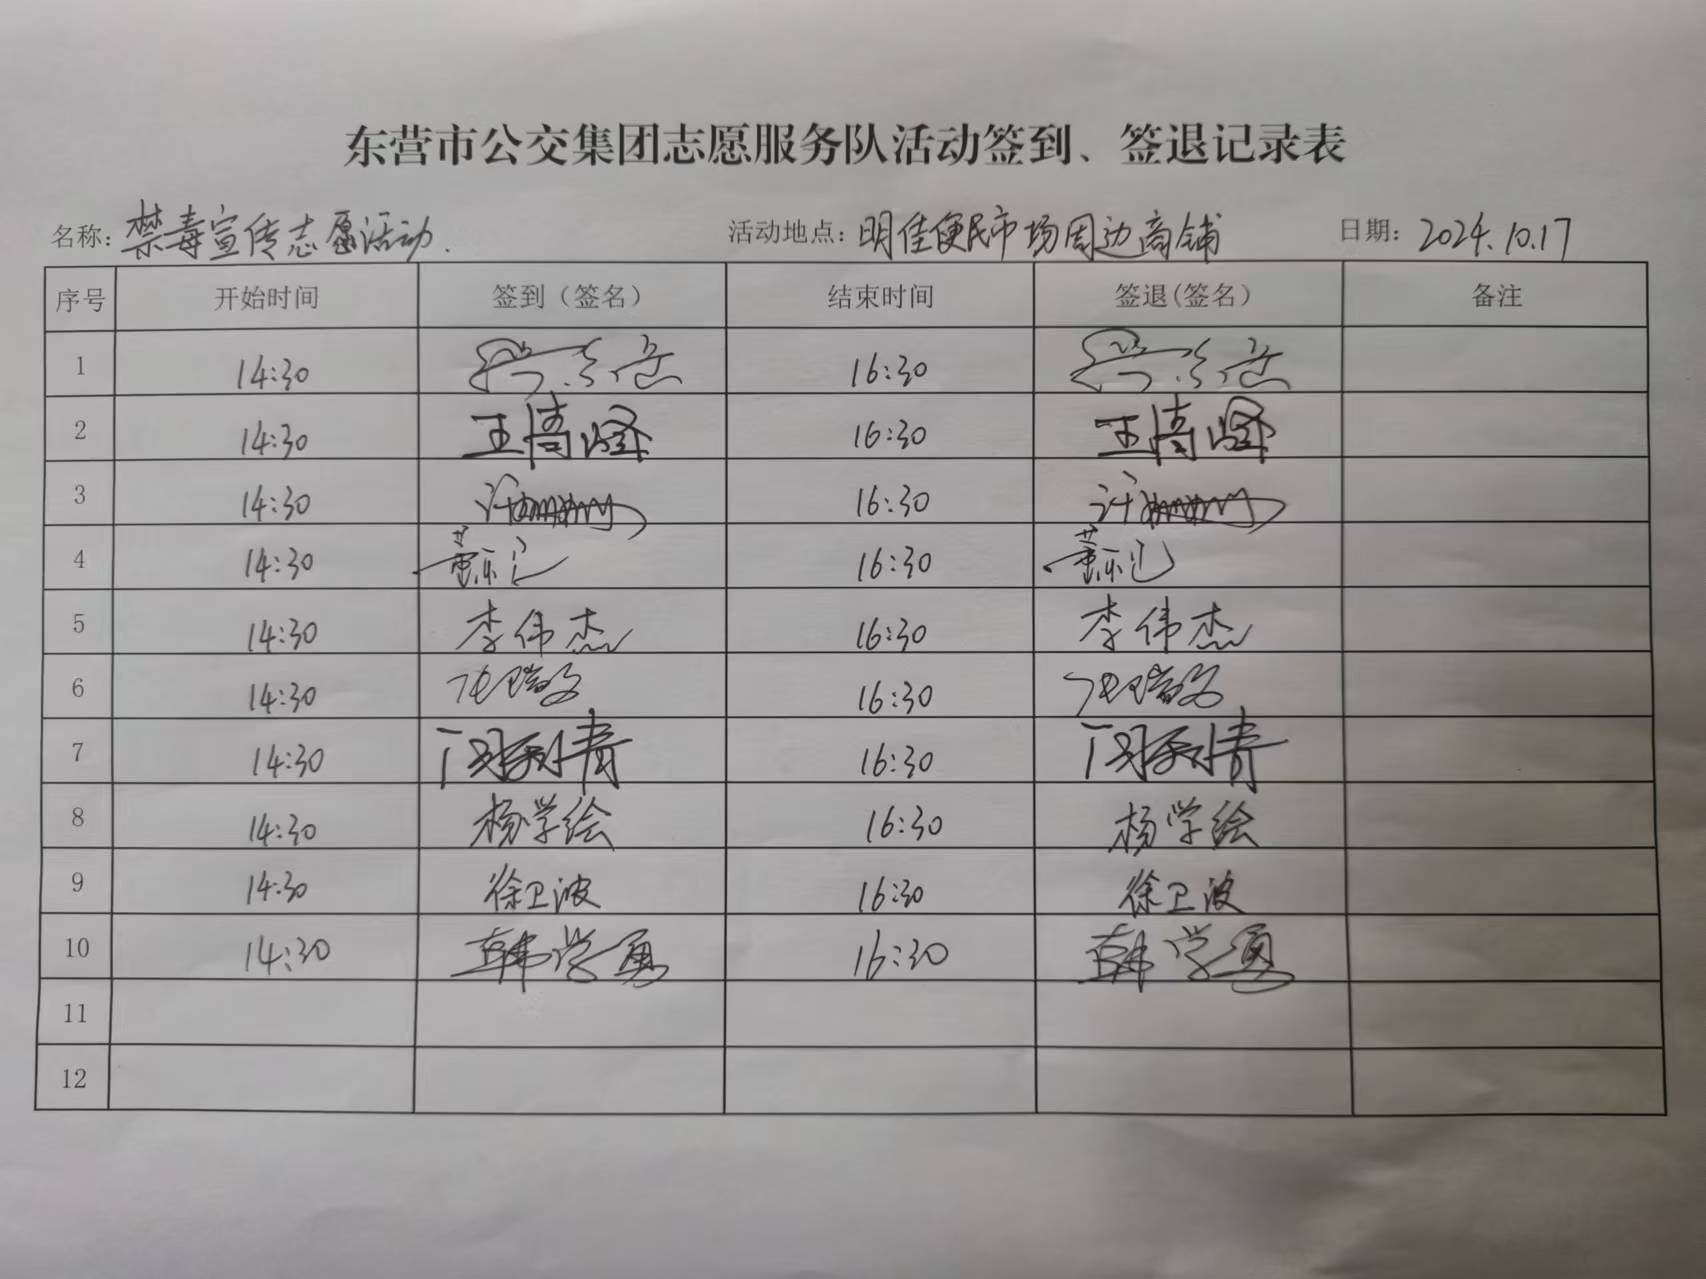 东营市公交集团志愿服务队活动签到、签退记录表
名称：禁毒宣传志愿活动. 活动地点：明佳便民市场周边商铺 日期：2024.10.17
序号 开始时间 签到（签名） 结束时间 签退(签名） 备注
1 14:30 16:30
2 14:30 王 16:30 王
3 14:30 许 16:30 许
4 14:30 董 16:30 董
5 14:30 李伟杰 16:30 李伟杰
6 14:30 张瑞 16:30 张瑞
7 14:30 16:30
8 14:30 杨学绘 16:30 杨学绘
9 14:30 徐卫波 16:30 徐卫波
10 14:30 韩学勇 16:30 韩学勇
11
12